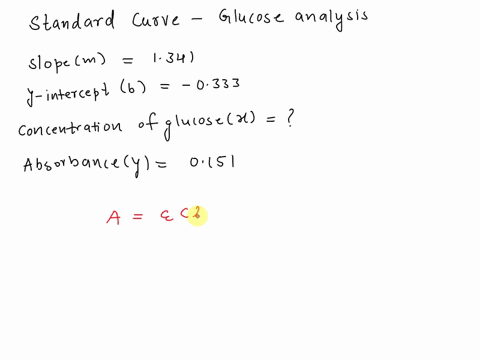 Standard Curve - Glucose analysis
Slope(m) = 1.341
y-intercept (b) = -0.333
Concentration of glucose(x) = ?
Absorbance(y) = 0.151
A = ε C l